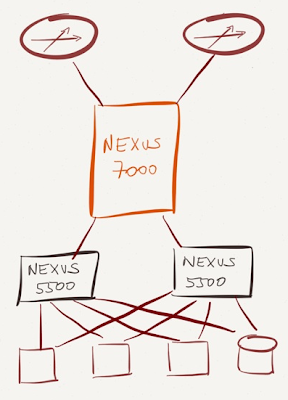 NEXUS
7000
NEXUS
5500
NEXUS
5500